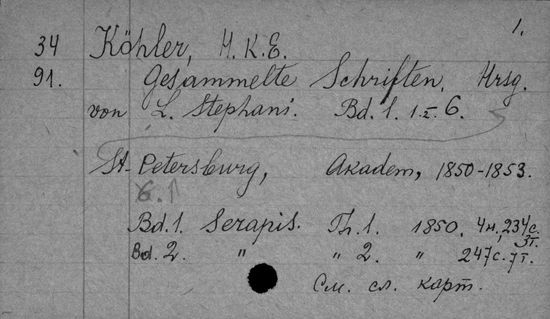 1.
34 Köhler, H. K. E.
91. Gesammelte Schriften. Hrsg.
von L. Stephani. Bd. 1. 1. 2. 6.
St-Petersburg, Akadem, 1850-1853.
6.↑
Bd. 1. Serapis. Th. 1. 1850. 4н, 234 с.
3т.
Bd. 2. " " 2. " 247 с. 7т.
См. сл. карт.